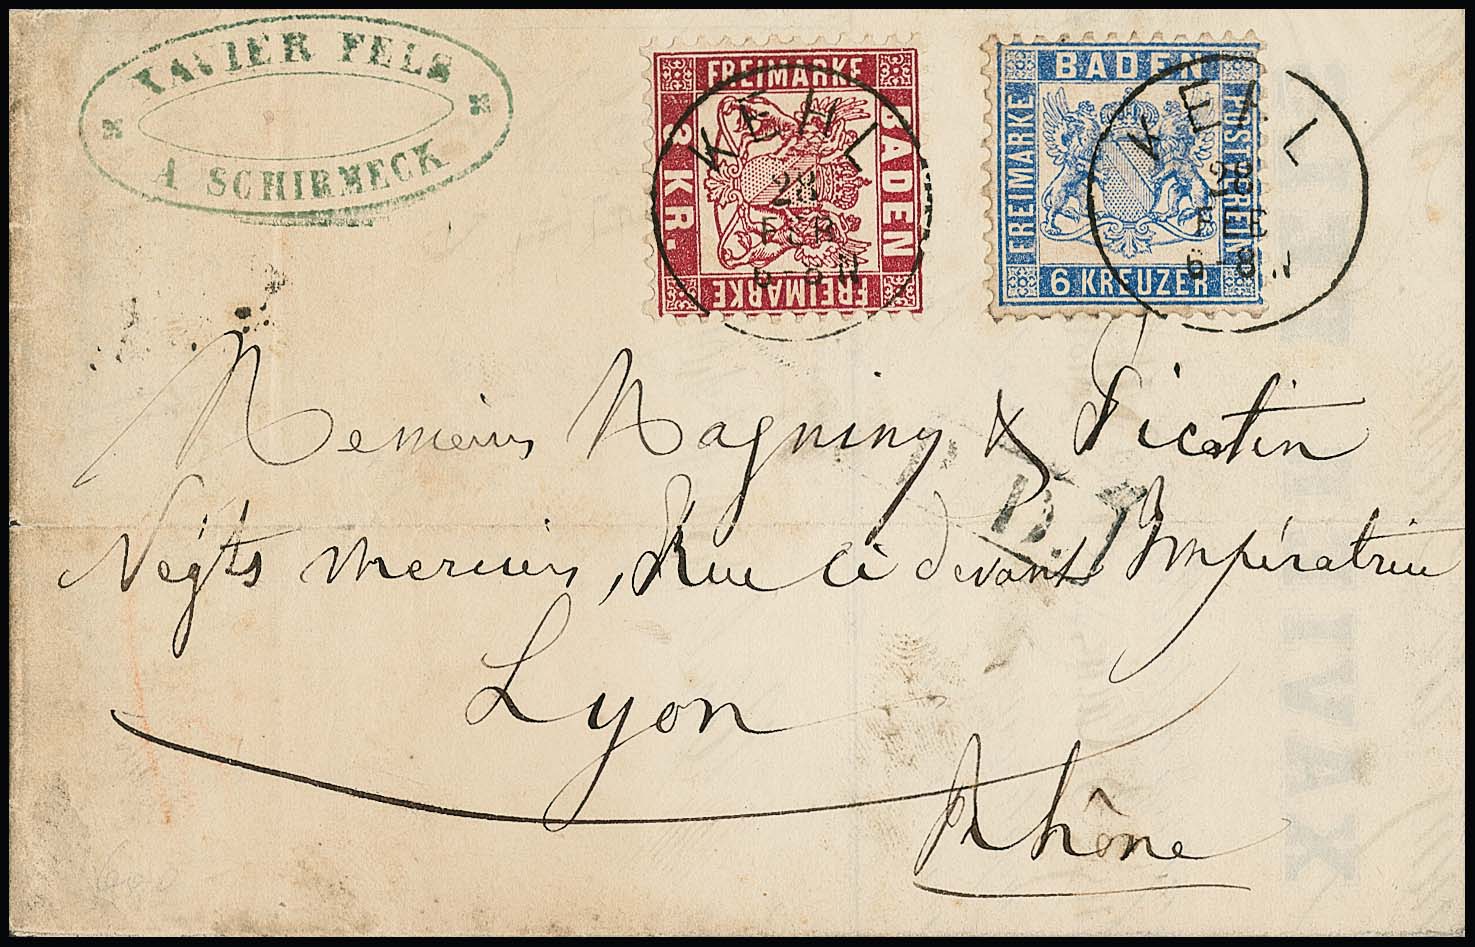 XAVIER FELS
A SCHIRMECK
FREIMARKE
BADEN
3 KR.
FREIMARKE
KEHL
28
FEB
6-8 N
BADEN
FREIMARKE
POSTVEREIN
6 KREUZER
KEHL
28
FEB
6-8 N
Messieurs Magniny & Picotin
Négts merciers, Rue ci devant Impératrice
Lyon
Rhône